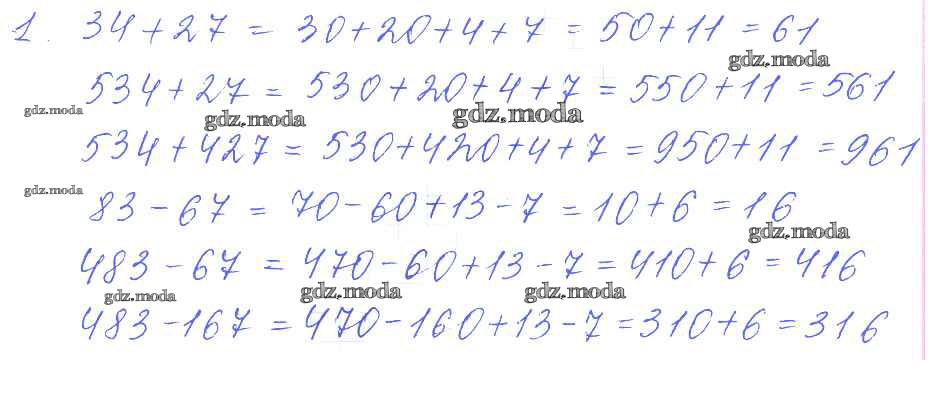 1. 34 + 27 = 30 + 20 + 4 + 7 = 50 + 11 = 61
gdz.moda
534 + 27 = 530 + 20 + 4 + 7 = 550 + 11 = 561
gdz.moda gdz.moda gdz.moda
534 + 427 = 530 + 420 + 4 + 7 = 950 + 11 = 961
gdz.moda
83 - 67 = 70 - 60 + 13 - 7 = 10 + 6 = 16
gdz.moda
483 - 67 = 470 - 60 + 13 - 7 = 410 + 6 = 416
gdz.moda gdz.moda gdz.moda
483 - 167 = 470 - 160 + 13 - 7 = 310 + 6 = 316